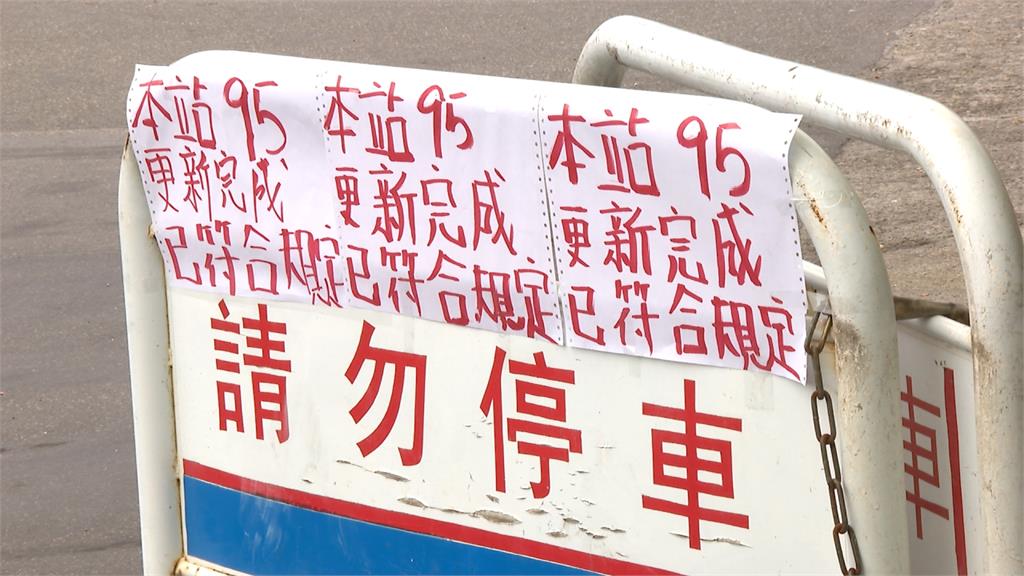 本站95
更新完成
已符合規定
本站95
更新完成
已符合規定
本站95
更新完成
已符合規定
請勿停車
車